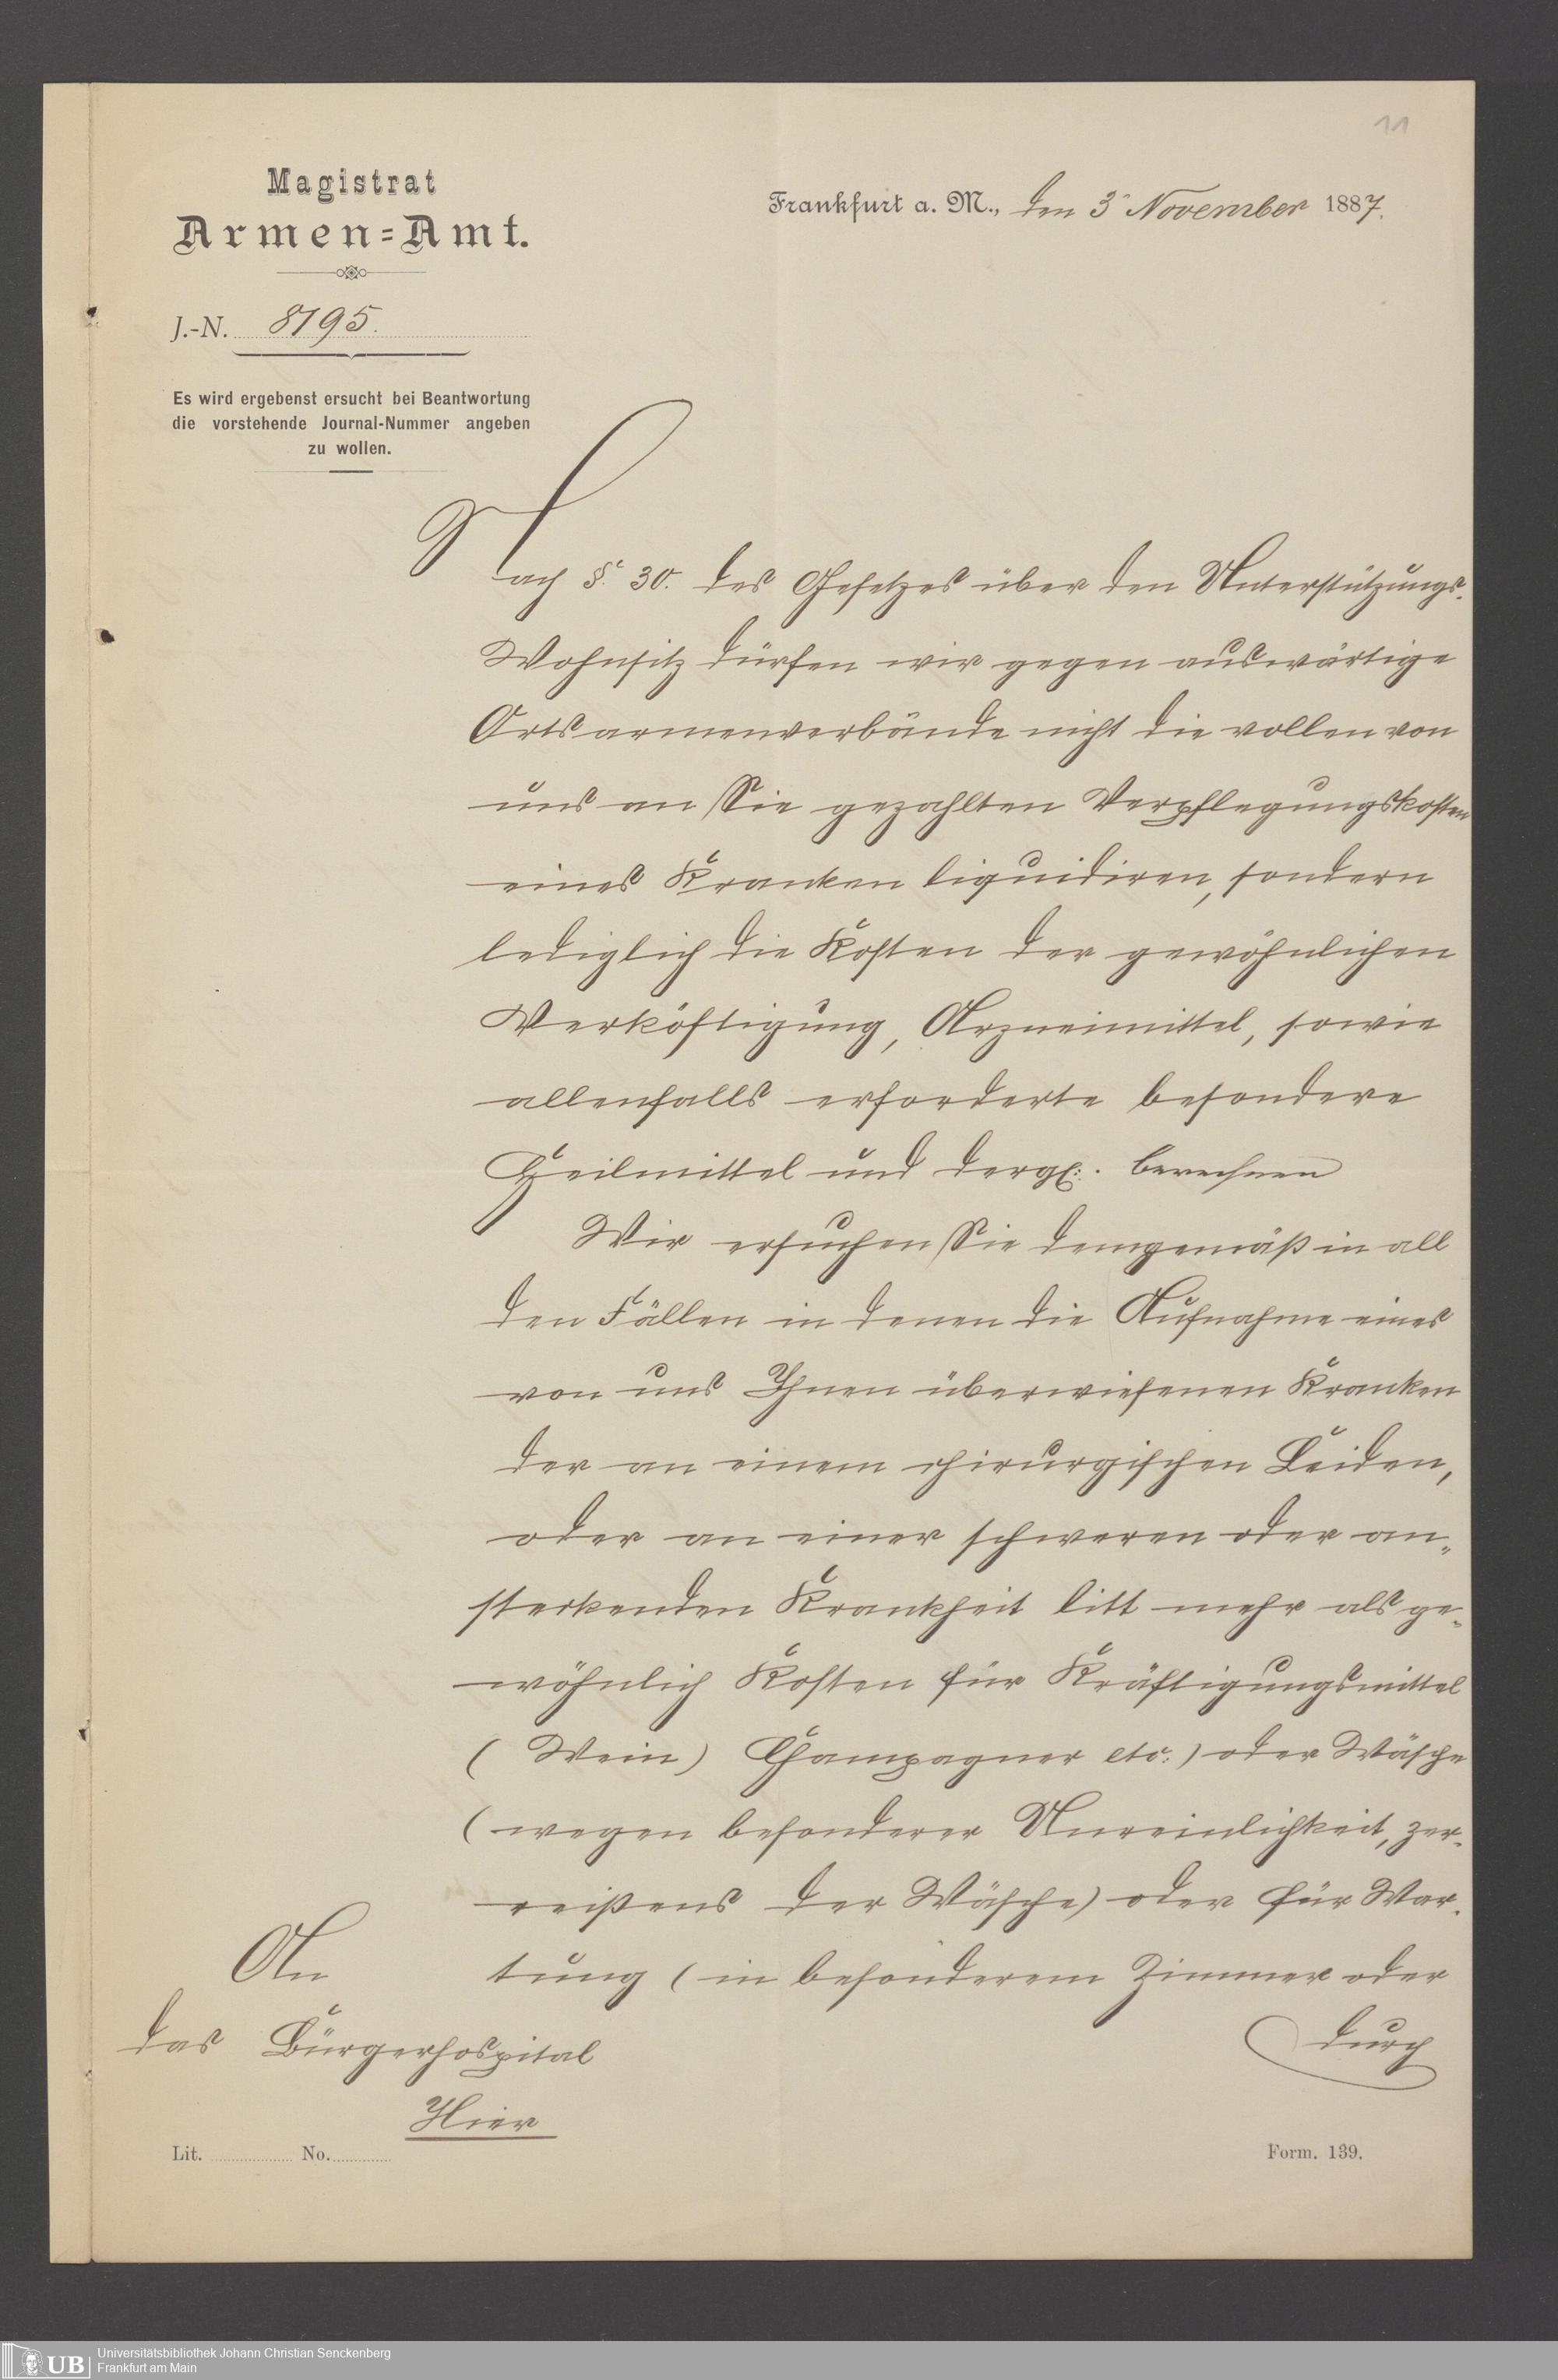 11
Magistrat
Armen=Amt.
Frankfurt a. M., den 3ᵗ November 1887.
J.-N. 8195.
Es wird ergebenst ersucht bei Beantwortung
die vorstehende Journal-Nummer angeben
zu wollen.
Nach §. 30. des Gesetzes über den Unterstützungs-
Wohnsitz dürfen wir gegen auswärtige
Ortsarmenverbände nicht die vollen von
uns an Sie gezahlten Verpflegungskosten
eines Kranken liquidiren, sondern
lediglich die Kosten der gewöhnlichen
Verköstigung, Arzneimittel, sowie
allenfalls erforderte besondere
Heilmittel und dergl. berechnen
Wir ersuchen Sie demgemäß in all
den Fällen in denen die Aufnahme eines
von uns Ihnen überwiesenen Kranken
der an einem chirurgischen Leiden,
oder an einer schweren oder an-
steckenden Krankheit litt mehr als ge-
wöhnlich Kosten für Kräftigungsmittel
( Wein) Champagner etc:) oder Wäsche
(wegen besonderer Unreinlichkeit, zer-
reißens der Wäsche) oder für War-
tung (in besonderem Zimmer oder
durch
An
das Bürgerhospital
Hier
Lit. No.
Form. 139.
UB
Universitätsbibliothek Johann Christian Senckenberg
Frankfurt am Main